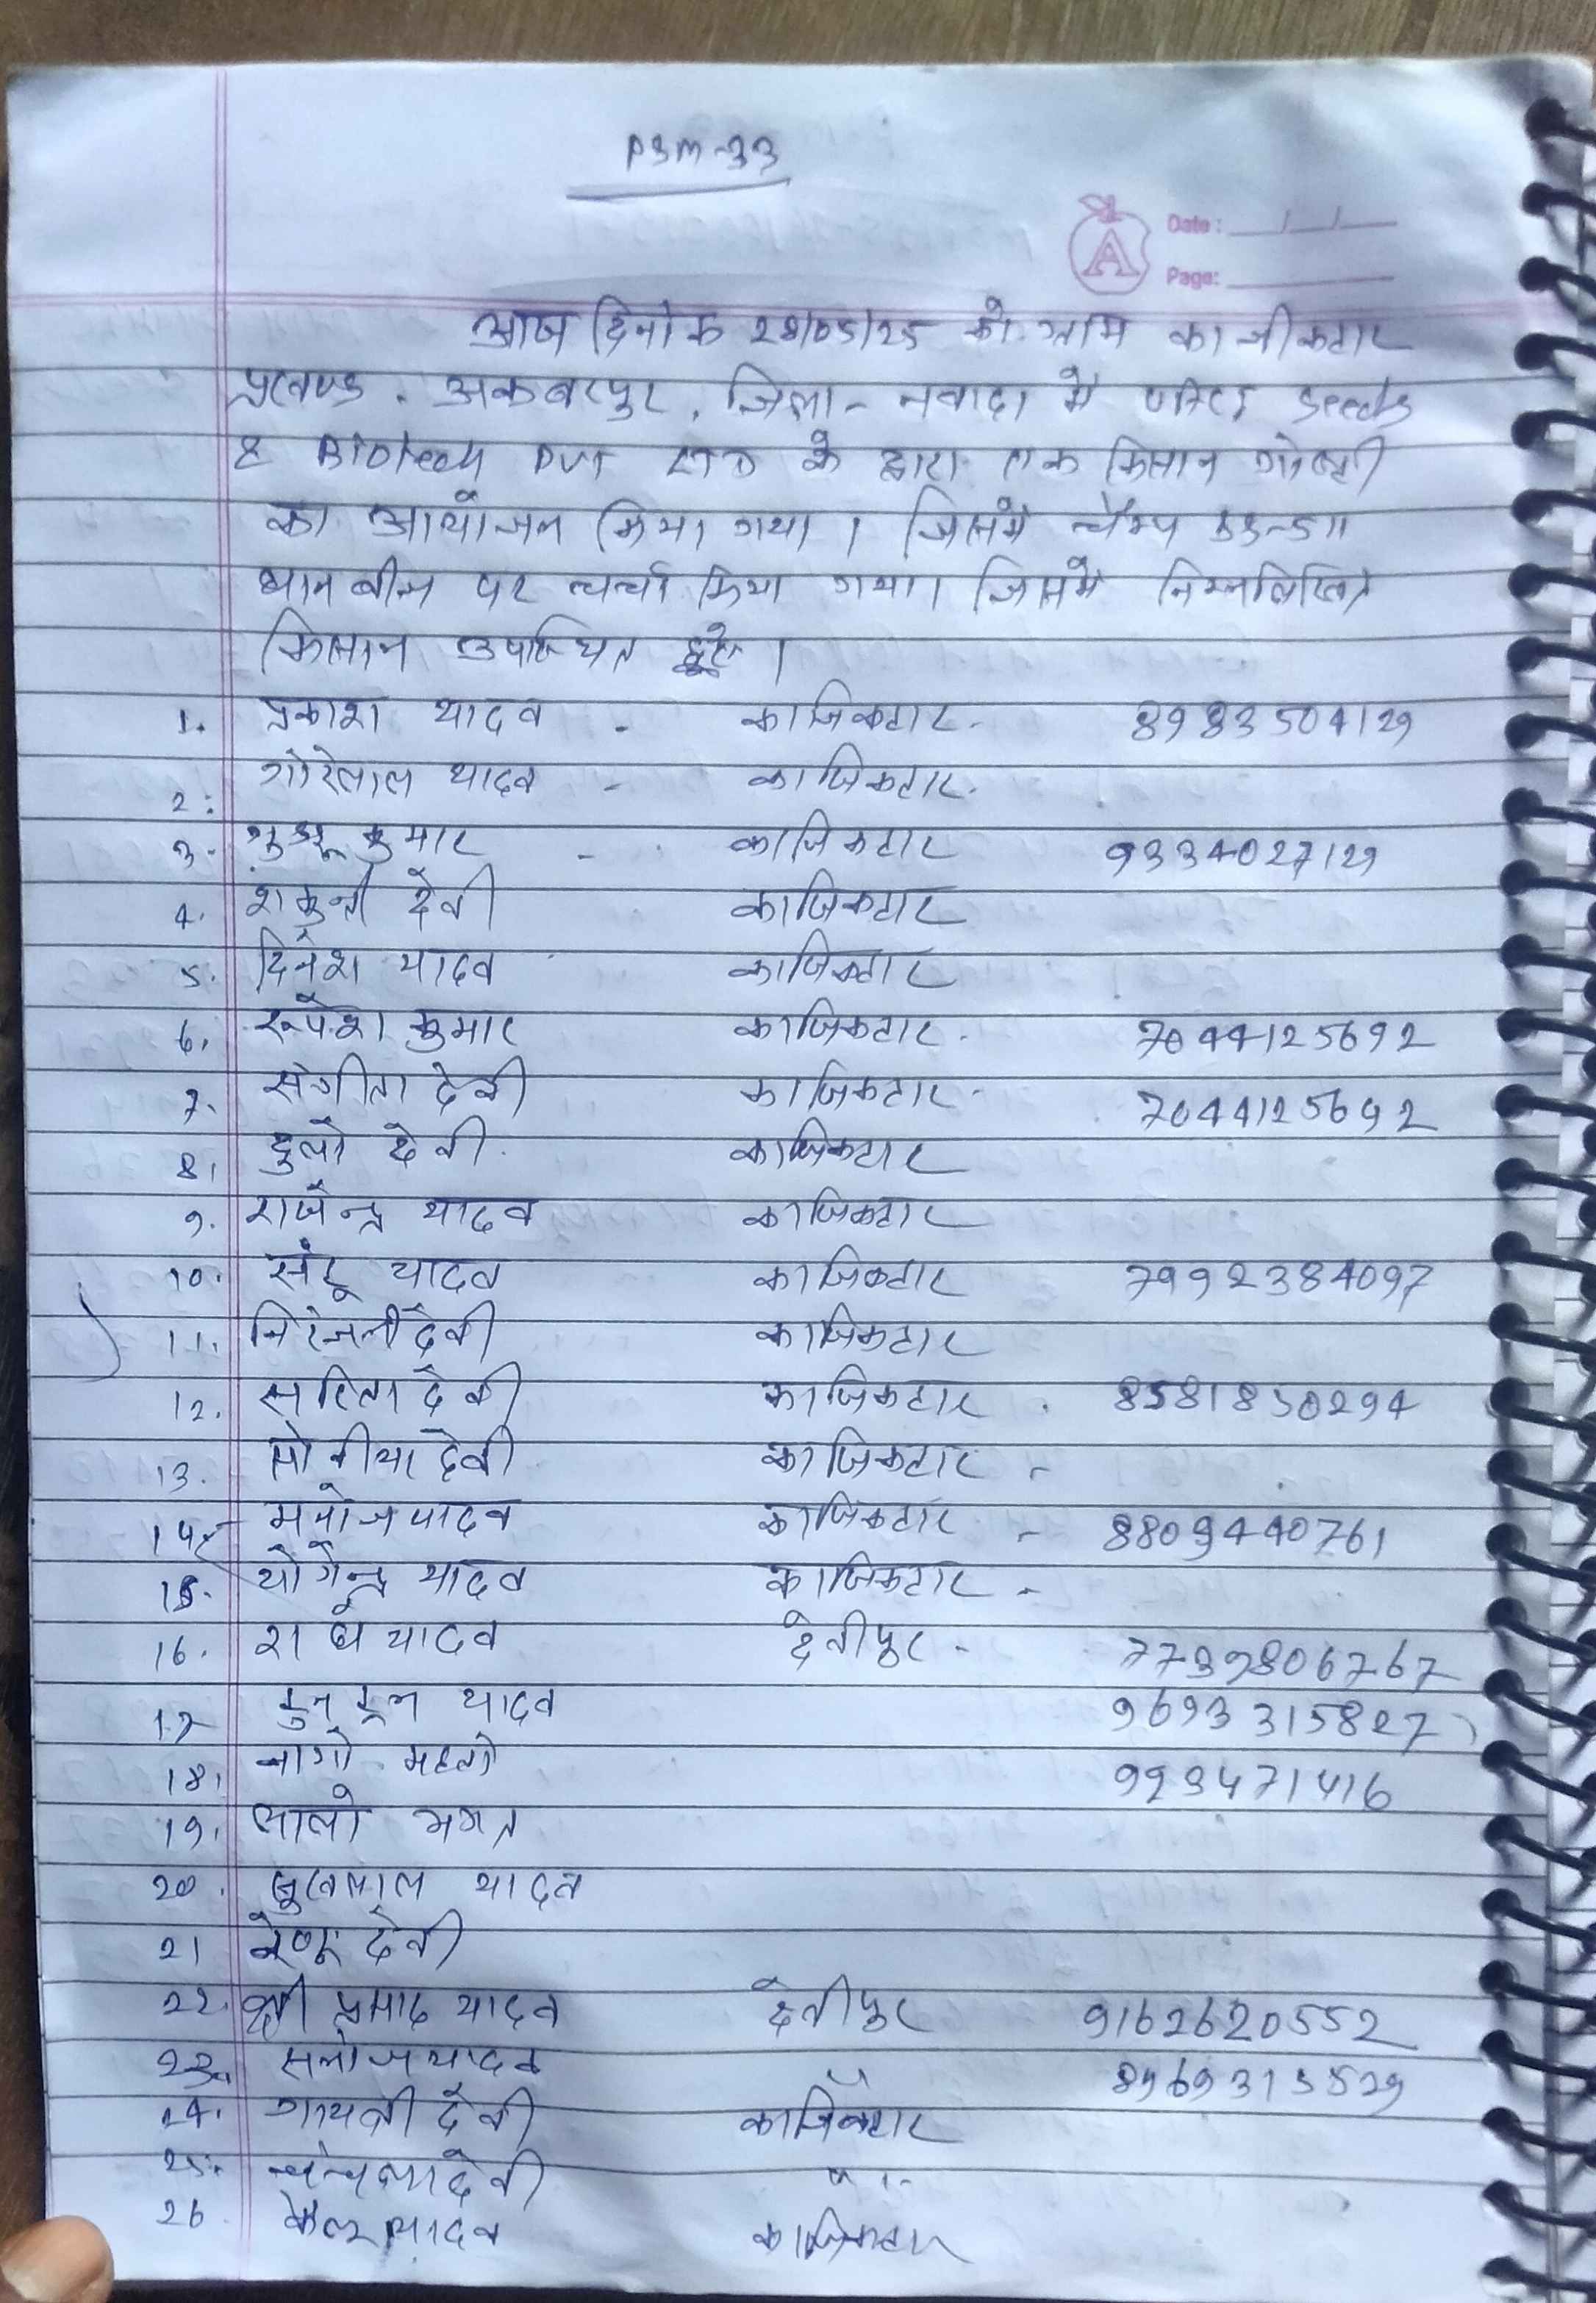 PSM-33
A
Date : __/__/__
Page: ______
आज दिनांक 28/05/25 को ग्राम काजीकटार
प्रखण्ड. अकबरपुर, जिला - नवादा में Seeds
& Biotech PVT LTD के द्वारा एक किसान गोष्ठी
का आयोजन किया गया । जिसमें चैम्प
धान बीज पर चर्चा किया गया। जिसमें निम्नलिखित
किसान उपस्थित हुए ।
1. प्रकाश यादव - काजिकटार - 8983504129
2. गोरेलाल यादव - काजिकटार.
3. कुमार - काजिकटार 9334027129
4. शकुन्ती देवी काजिकटार
5. दिनेश यादव काजिकटार
6. रूपेश कुमार काजिकटार - 7044125692
7. संगीता देवी काजिकटार - 7044125692
8. दुलो देवी काजिकटार
9. राजेन्द्र यादव काजिकटार
10. संटू यादव काजिकटार 7992384097
11. निरंजनी देवी काजिकटार
12. सरिता देवी काजिकटार . 8581850294
13. सोनीया देवी काजिकटार -
14. मनोज यादव काजिकटार - 8809440761
15. योगेन्द्र यादव काजिकटार -
16. राधे यादव देवीपुर - 7739806767
17 यादव 9693315827
18. नागो महतो 993471416
19. लालो भगत
20. यादव
21 रेणु देवी
22. श्री प्रसाद यादव देवीपुर 9162620552
23. सनोज यादव " 8969315529
24. गायत्री देवी काजिकटार
25. चंचला देवी " -
26 यादव काजिकटार